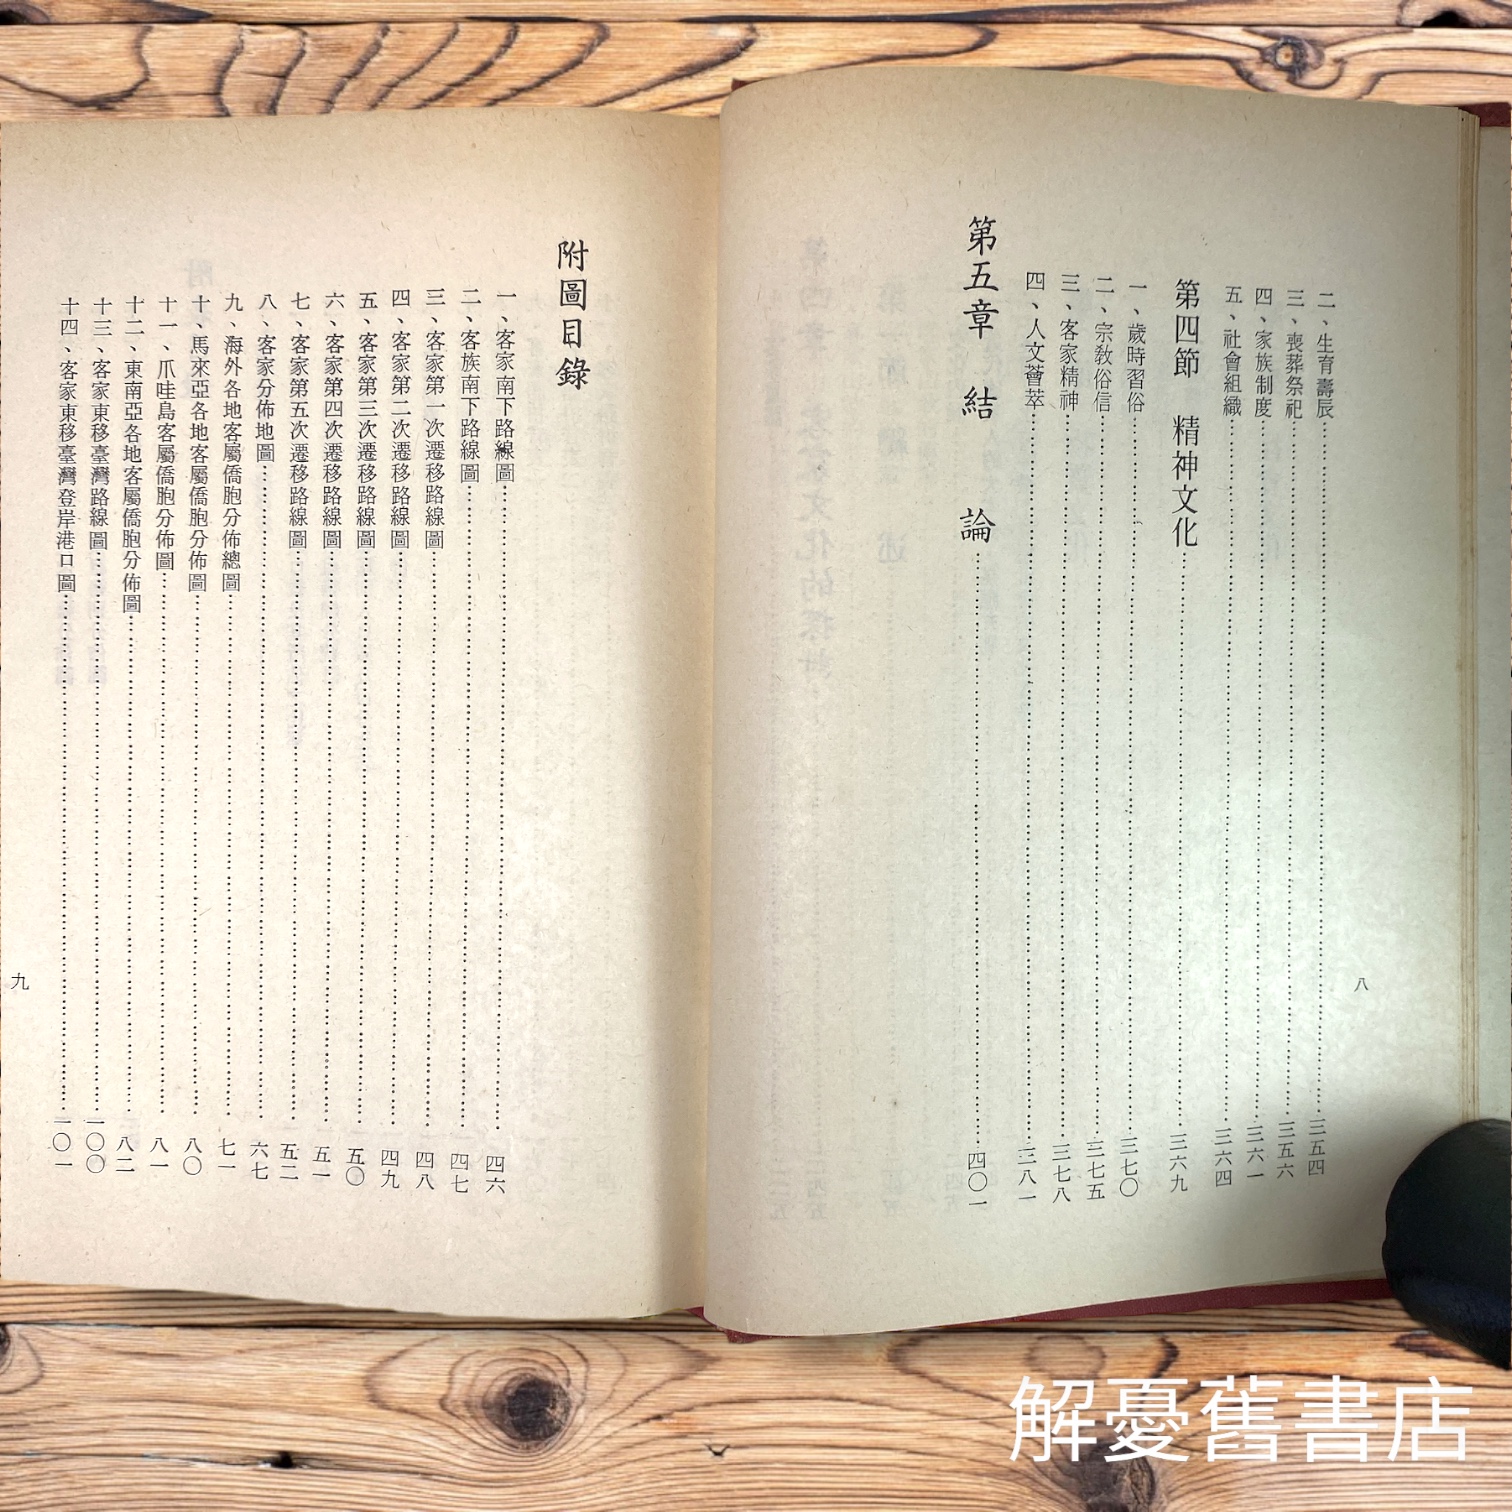 二、生育壽辰……三五四
三、喪葬祭祀……三五六
四、家族制度……三六一
五、社會組織……三六四
第四節 精神文化……三六九
一、歲時習俗……三七〇
二、宗教俗信……三七五
三、客家精神……三七八
四、人文薈萃……三八一
第五章 結 論……四〇一
八
附圖目錄
一、客家南下路線圖……四六
二、客族南下路線圖……四七
三、客家第一次遷移路線圖……四八
四、客家第二次遷移路線圖……四九
五、客家第三次遷移路線圖……五〇
六、客家第四次遷移路線圖……五一
七、客家第五次遷移路線圖……五二
八、客家分佈地圖……六七
九、海外各地客屬僑胞分佈總圖……七一
十、馬來亞各地客屬僑胞分佈圖……八〇
十一、爪哇島客屬僑胞分佈圖……八一
十二、東南亞各地客屬僑胞分佈圖……八二
十三、客家東移臺灣路線圖……一〇〇
十四、客家東移臺灣登岸港口圖……一〇一
九
解憂舊書店